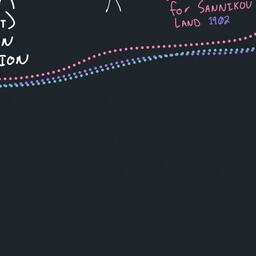 T)
N
ION
for SANNIKOV
LAND 1902